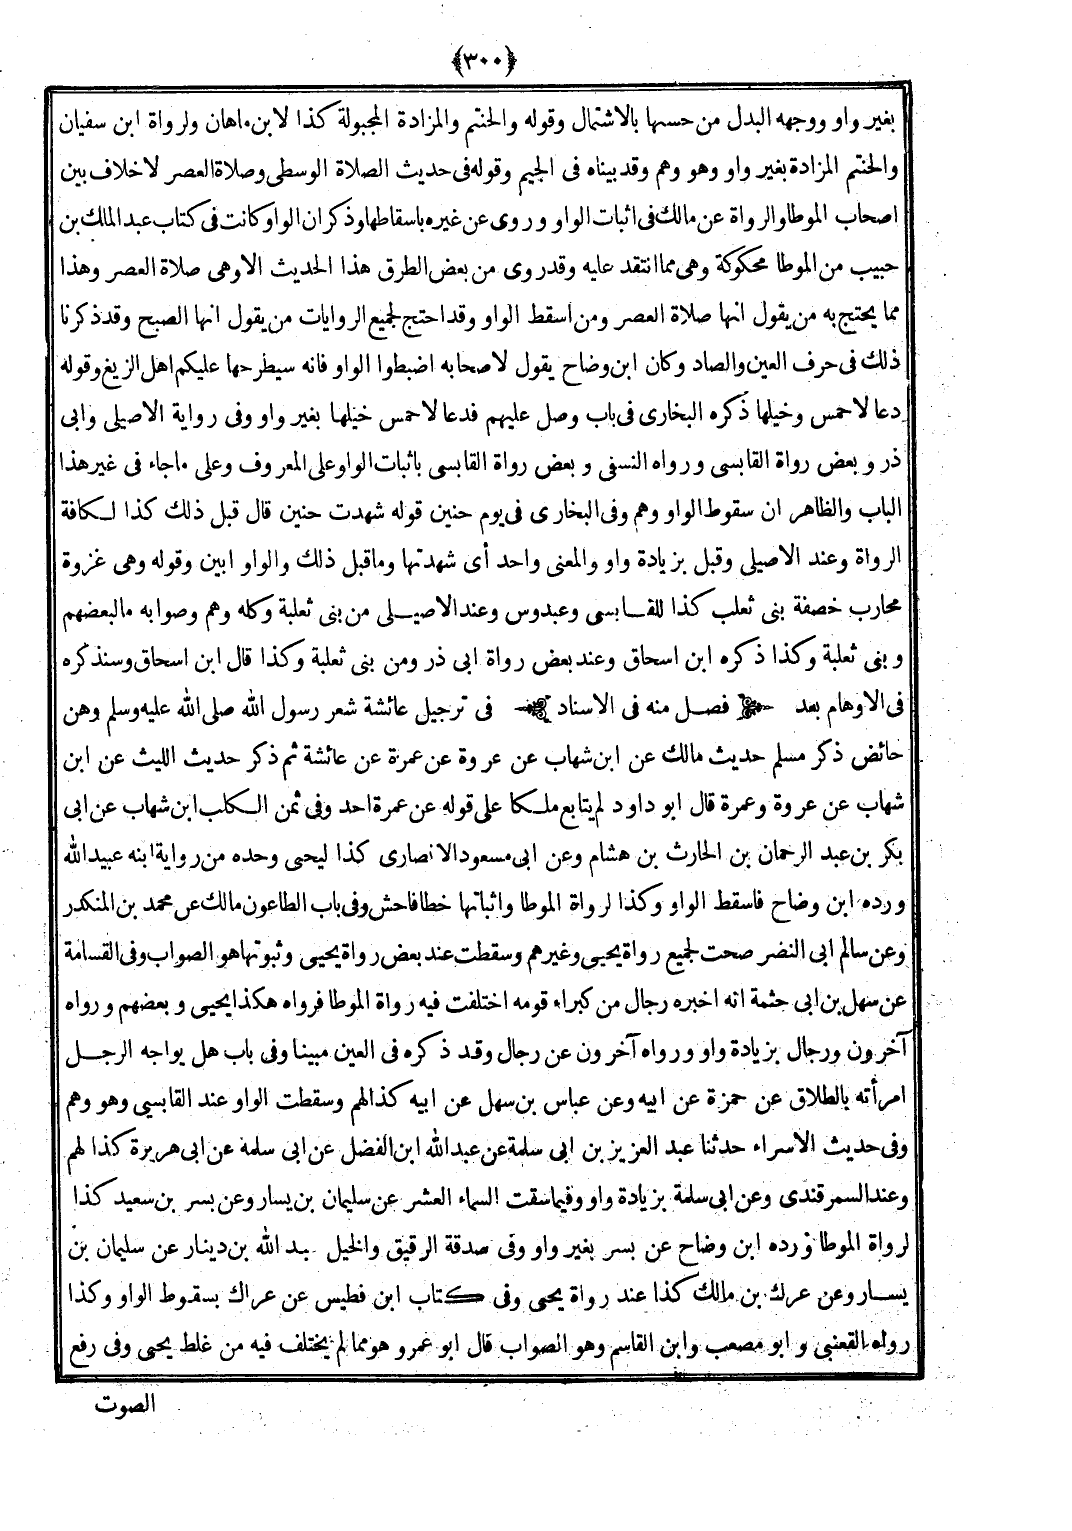 ﴿٣٠٠﴾
بغير واو ووجهه البدل من حسها بالاشتمال وقوله والحنتم والمزادة المجبولة كذا لابن ماهان ولرواة ابن سفيان
والحنتم المزادة بغير واو وهو وهم وقد بيناه فى الجيم وقوله فى حديث الصلاة الوسطى وصلاة العصر لا خلاف بين
اصحاب الموطا والرواة عن مالك فى اثبات الواو وروى عن غيره باسقاطها وذكر ان الواو كانت فى كتاب عبد الملك بن
حبيب من الموطا محكوكة وهى مما انتقد عليه وقد روى من بعض الطرق هذا الحديث الا وهى صلاة العصر وهذا
مما يحتج به من يقول انها صلاة العصر ومن اسقط الواو وقد احتج لجميع الروايات من يقول انها الصبح وقد ذكرنا
ذلك فى حرف العين والصاد وكان ابن وضاح يقول لاصحابه اضبطوا الواو فانه سيطرحها عليكم اهل الزيغ وقوله
دعا لاحمس وخيلها ذكره البخارى فى باب وصل عليهم فدعا لاحمس خيلها بغير واو وفى رواية الاصيلى وابى
ذر وبعض رواة القابسى ورواه النسفى وبعض رواة القابسى باثبات الواو على المعروف وعلى ماجاء فى غير هذا
الباب والظاهر ان سقوط الواو وهم وفى البخارى فى يوم حنين قوله شهدت حنين قال قبل ذلك كذا لكافة
الرواة وعند الاصيلى وقبل بزيادة واو والمعنى واحد أى شهدتها وماقبل ذلك والواو ابين وقوله وهى غزوة
محارب خصفة بنى ثعلب كذا للقابسى وعبدوس وعند الاصيلى من بنى ثعلبة وكله وهم وصوابه مالبعضهم
وبنى ثعلبة وكذا ذكره ابن اسحاق وعند بعض رواة ابى ذر ومن بنى ثعلبة وكذا قال ابن اسحاق وسنذكره
فى الاوهام بعد فصل منه فى الاسناد فى ترجيل عائشة شعر رسول الله صلى الله عليه وسلم وهن
حائض ذكر مسلم حديث مالك عن ابن شهاب عن عروة عن عمرة عن عائشة ثم ذكر حديث الليث عن ابن
شهاب عن عروة وعمرة قال ابو داود لم يتابع ملكا على قوله عن عمرة احد وفى ثمن الكلب ابن شهاب عن ابى
بكر بن عبد الرحمان بن الحارث بن هشام وعن ابى مسعود الانصارى كذا ليحيى وحده من رواية ابنه عبيد الله
ورده ابن وضاح فاسقط الواو وكذا لرواة الموطا واثباتها خطا فاحش وفى باب الطاعون مالك عن محمد بن المنكدر
وعن سالم ابى النضر صحت لجميع رواة يحيى وغيرهم وسقطت عند بعض رواة يحيى وثبوتها هو الصواب وفى القسامة
عن سهل بن ابى حثمة انه اخبره رجال من كبراء قومه اختلفت فيه رواة الموطا فرواه هكذا يحيى وبعضهم ورواه
آخرون ورجال بزيادة واو ورواه آخرون عن رجال وقد ذكره فى العين مبينا وفى باب هل يواجه الرجل
امرأته بالطلاق عن حمزة عن ابيه وعن عباس بن سهل عن ابيه كذا لهم وسقطت الواو عند القابسى وهو وهم
وفى حديث الاسراء حدثنا عبد العزيز بن ابى سلمة عن عبد الله ابن الفضل عن ابى سلمة عن ابى هريرة كذا لهم
وعند السمرقندى وعن ابى سلمة بزيادة واو وفيما سقت السماء العشر عن سليمان بن يسار وعن بسر بن سعيد كذا
لرواة الموطا ورده ابن وضاح عن بسر بغير واو وفى صدقة الرقيق والخيل بد الله بن دينار عن سليمان بن
يسار وعن عرك بن مالك كذا عند رواة يحيى وفى كتاب ابن فطيس عن عراك بسقوط الواو وكذا
رواه القعنبى و ابو مصعب وابن القاسم وهو الصواب قال ابو عمرو هو مما لم يختلف فيه من غلط يحيى وفى رفع
الصوت